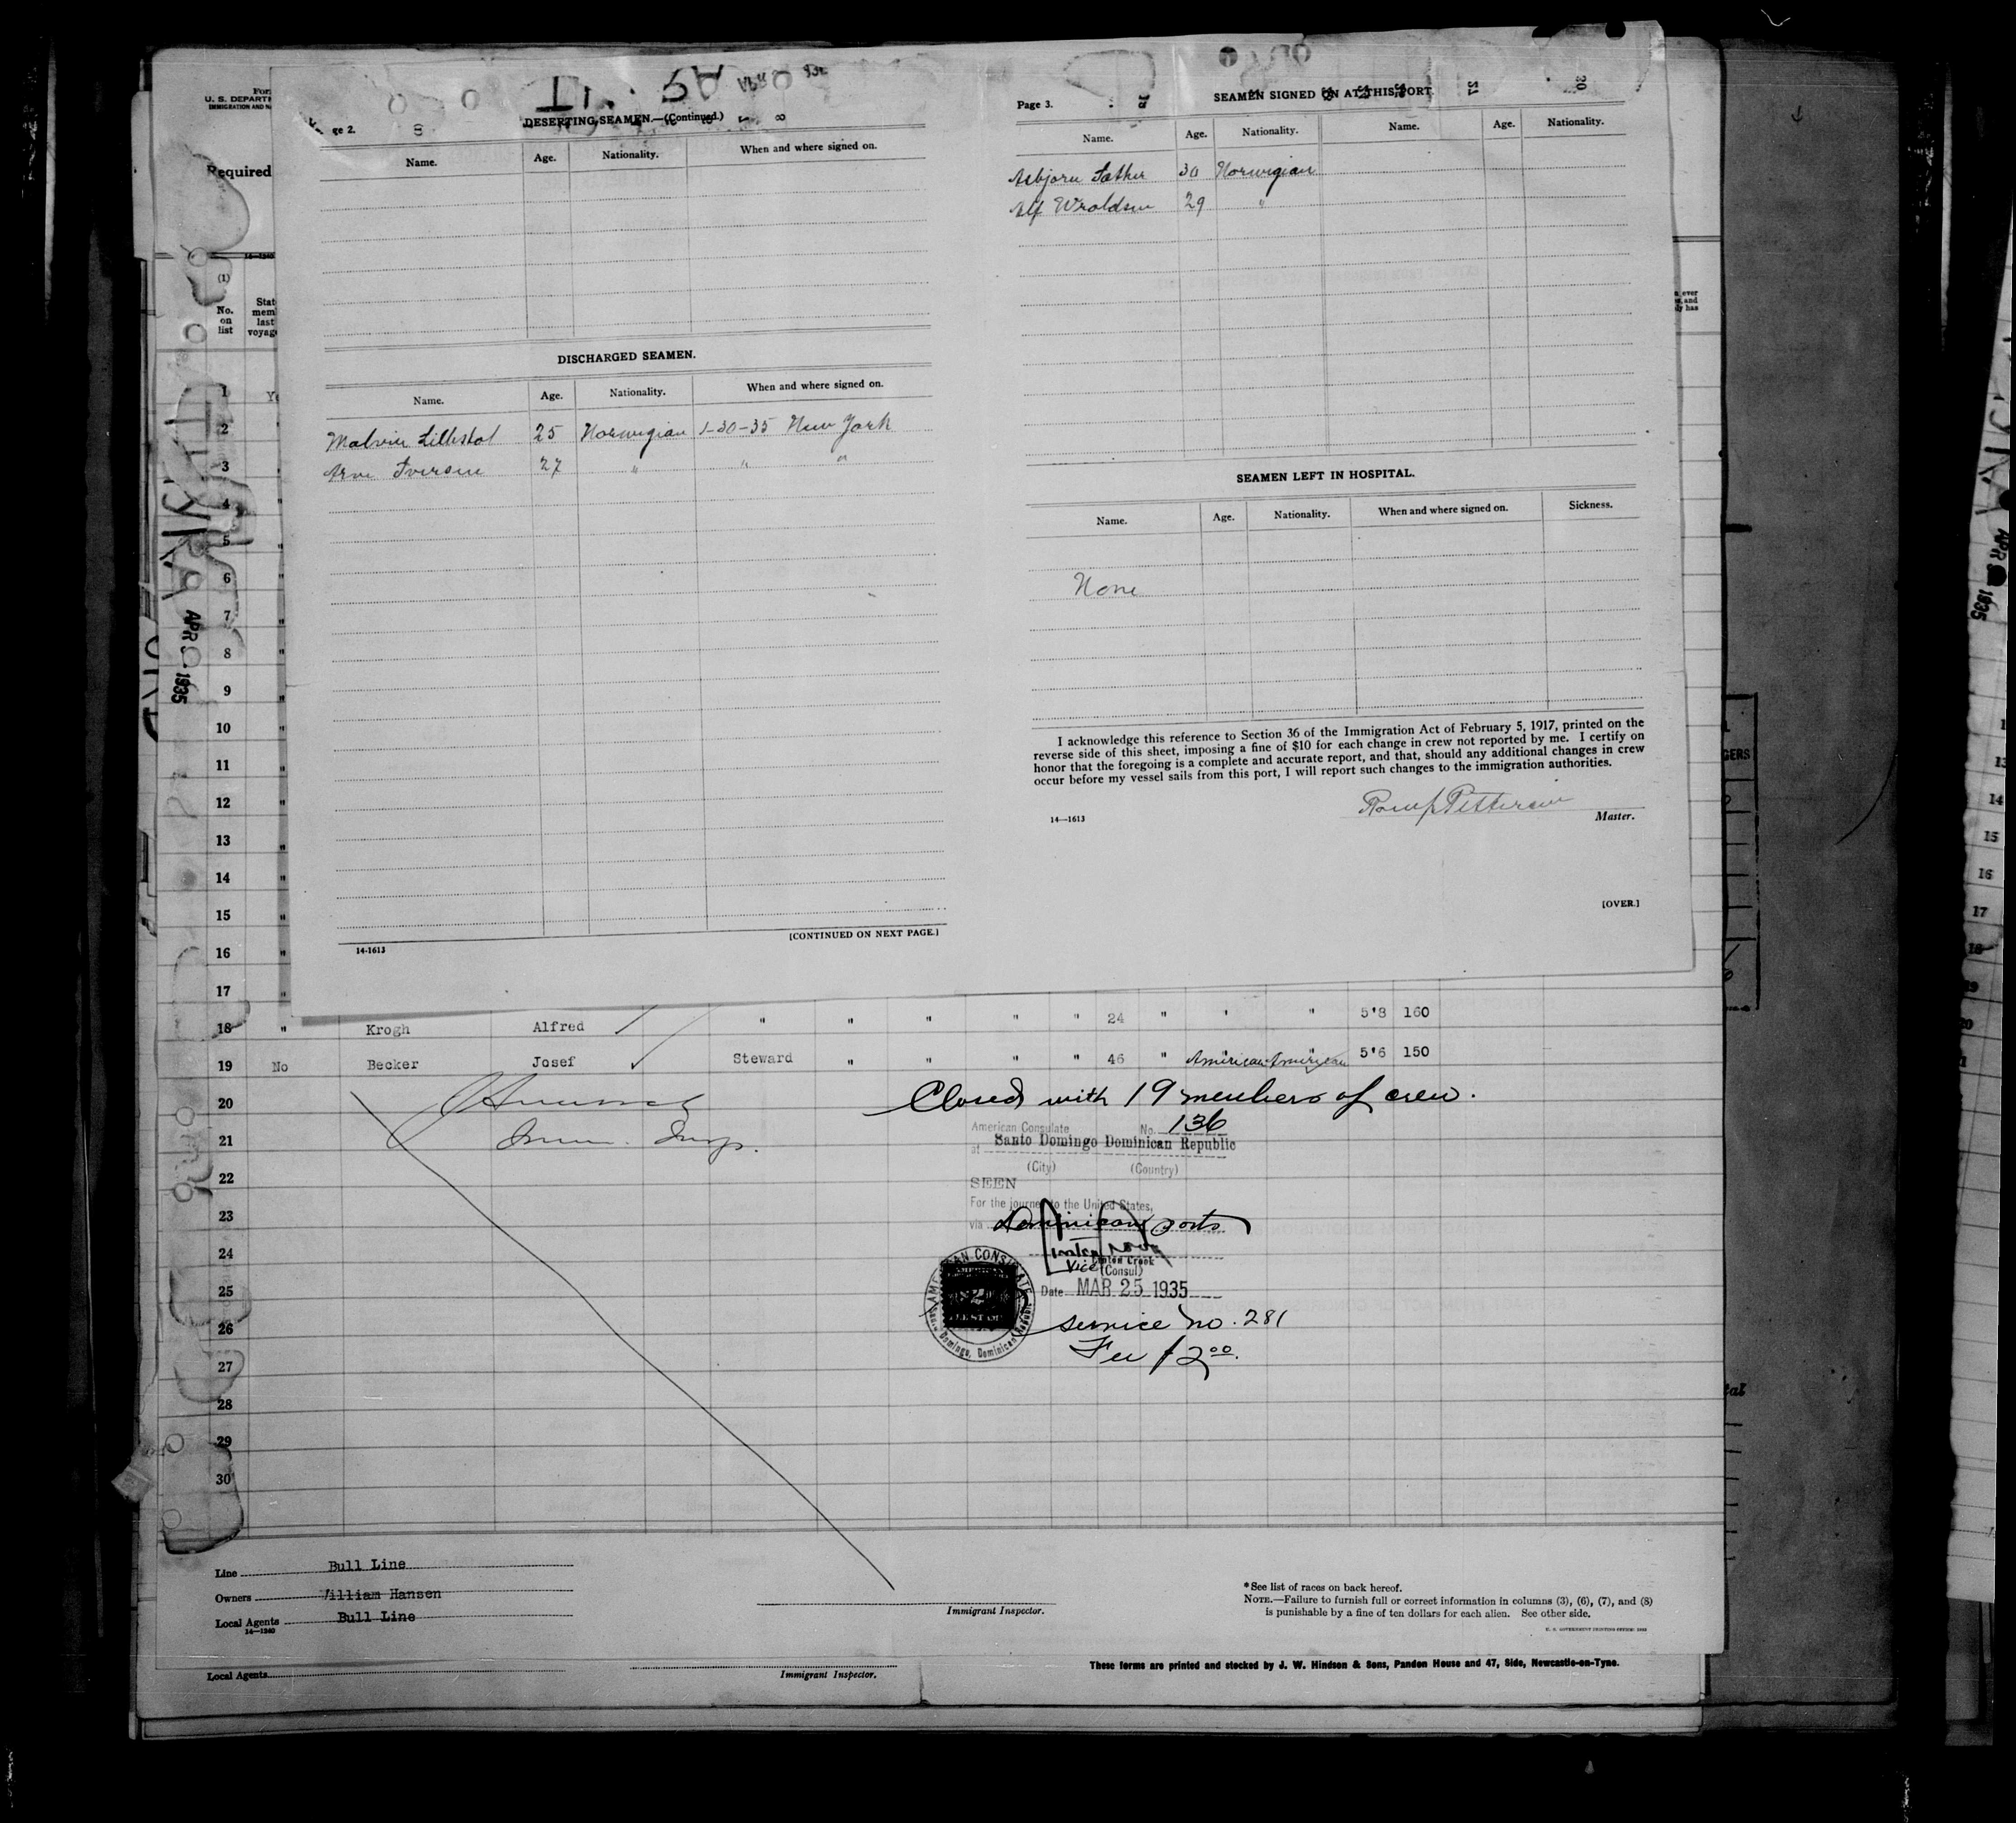 For
U. S. DEPARTM
IMMIGRATION AND N
Required
ge 2.
DESERTING SEAMEN.—(Continued.)
Name. Age. Nationality. When and where signed on.
DISCHARGED SEAMEN.
Name. Age. Nationality. When and where signed on.
25 Norwegian 1-30-35 New York
Arne Iversen 27 " " "
[CONTINUED ON NEXT PAGE.]
14-1613
Page 3.
SEAMEN SIGNED ON AT THIS PORT.
Name. Age. Nationality. Name. Age. Nationality.
Asbjorn Sather 30 Norwegian
Alf Wroldsen 29 "
SEAMEN LEFT IN HOSPITAL.
Name. Age. Nationality. When and where signed on. Sickness.
None
I acknowledge this reference to Section 36 of the Immigration Act of February 5, 1917, printed on the
reverse side of this sheet, imposing a fine of $10 for each change in crew not reported by me. I certify on
honor that the foregoing is a complete and accurate report, and that, should any additional changes in crew
occur before my vessel sails from this port, I will report such changes to the immigration authorities.
Pettersen
14—1613 Master.
[OVER.]
14-1240
(1)
No. on list
Stat mem last voyag
1 Ye
2 "
3 "
4 "
5 "
6 "
7 "
8 "
9 "
10 "
11 "
12 "
13 "
14 "
15 "
16 "
17 "
18 " Krogh Alfred " " " " " 24 " " " 5'8 160
19 No Becker Josef Steward " " " " 46 " American American 5'6 150
20 Closed with 19 members of crew.
American Consulate No. 136
21 Imm. Insp.
at Santo Domingo Dominican Republic
(City) (Country)
22
SEEN
For the journey to the United States,
23
via Dominican ports
24
Vice (Consul)
25
Date MAR 25 1935
AMERICAN CONSULATE
Santo Domingo, Dominican Republic
26 service no. 281
27 Fee $2.00.
28
29
30
Line Bull Line
Owners William Hansen
Local Agents Bull Line
14—1240
Immigrant Inspector.
*See list of races on back hereof.
NOTE.—Failure to furnish full or correct information in columns (3), (6), (7), and (8)
is punishable by a fine of ten dollars for each alien. See other side.
Local Agents
Immigrant Inspector.
These forms are printed and stocked by J. W. Hindson & Sons, Pandon House and 47, Side, Newcastle-on-Tyne.
APR 1935
APR 1935
14
15
16
17